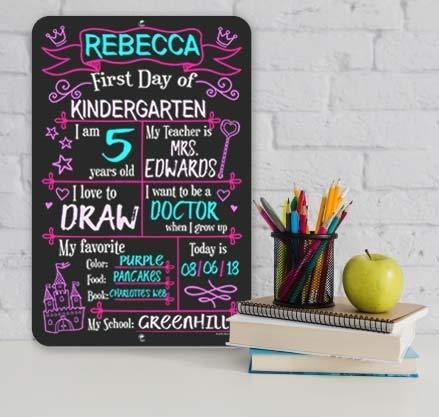 REBECCA
First Day of
KINDERGARTEN
I am
5
years old
My Teacher is
MRS.
EDWARDS
I love to
DRAW
I want to be a
DOCTOR
when I grow up
My favorite
Color: PURPLE
Food: PANCAKES
Book: CHARLOTTE'S WEB
Today is
08/06/18
My School: GREENHILL